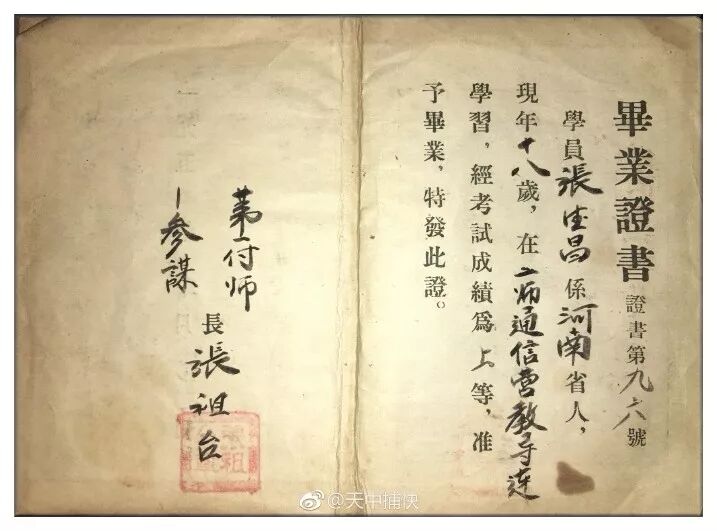 畢業證書 證書第九六號
學員張生昌係河南省人,
現年十八歲,在二师通信营教导连
學習,經考試成績爲上等,准
予畢業,特發此證。
第一付师
參謀長張祖台
@天中捕快